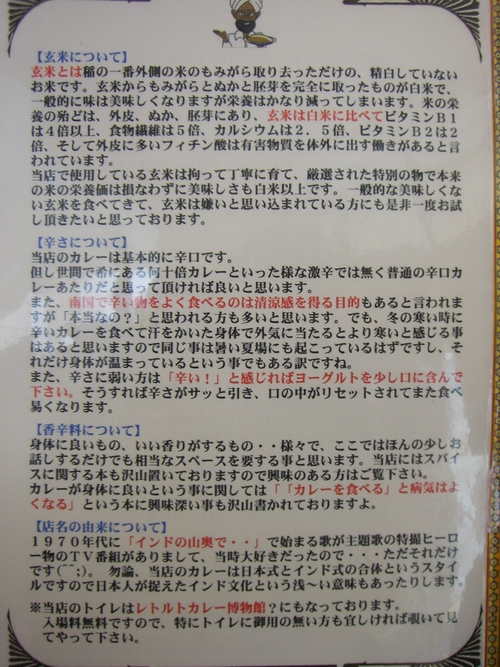 【玄米について】
玄米とは稲の一番外側の米のもみがら取り去っただけの、精白していない
お米です。玄米からもみがらとぬかと胚芽を完全に取ったものが白米で、
一般的に味は美味しくなりますが栄養はかなり減ってしまいます。米の栄
養の殆どは、外皮、ぬか、胚芽にあり、玄米は白米に比べてビタミンB1
は4倍以上、食物繊維は5倍、カルシウムは2.5倍、ビタミンB2は2
倍、そして外皮に多いフィチン酸は有害物質を体外に出す働きがあると言
われています。
当店で使用している玄米は拘って丁寧に育て、厳選された特別の物で本来
の米の栄養価は損なわずに美味しさも白米以上です。一般的な美味しくな
い玄米を食べてきて、玄米は嫌いと思い込まれている方にも是非一度お試
し頂きたいと思っております。
【辛さについて】
当店のカレーは基本的に辛口です。
但し世間で希にある何十倍カレーといった様な激辛では無く普通の辛口カ
レーあたりだと思って頂ければ良いと思います。
また、南国で辛い物をよく食べるのは清涼感を得る目的もあると言われま
すが「本当なの?」と思われる方も多いと思います。でも、冬の寒い時に
辛いカレーを食べて汗をかいた身体で外気に当たるとより寒いと感じる事
はあると思いますので同じ事は暑い夏場にも起こっているはずですし、そ
れだけ身体が温まっているという事でもある訳ですね。
また、辛さに弱い方は「辛い!」と感じればヨーグルトを少し口に含んで
下さい。そうすれば辛さがサッと引き、口の中がリセットされてまた食べ
易くなります。
【香辛料について】
身体に良いもの、いい香りがするもの・・様々で、ここではほんの少しお
話しするだけでも相当なスペースを要する事と思います。当店にはスパイ
スに関する本も沢山置いておりますので興味のある方はご覧下さい。
カレーが身体に良いという事に関しては「「カレーを食べる」と病気はよ
くなる」という本に興味深い事も沢山書かれておりますよ。
【店名の由来について】
1970年代に「インドの山奥で・・」で始まる歌が主題歌の特撮ヒーロ
ー物のTV番組がありまして、当時大好きだったので・・・ただそれだけ
です(⌒⌒;)。 勿論、当店のカレーは日本式とインド式の合体というスタイ
ルですので日本人が捉えたインド文化という浅~い意味もあったりします。
※当店のトイレはレトルトカレー博物館?にもなっております。
入場料無料ですので、特にトイレに御用の無い方も宜しければ覗いて見
てやって下さい。